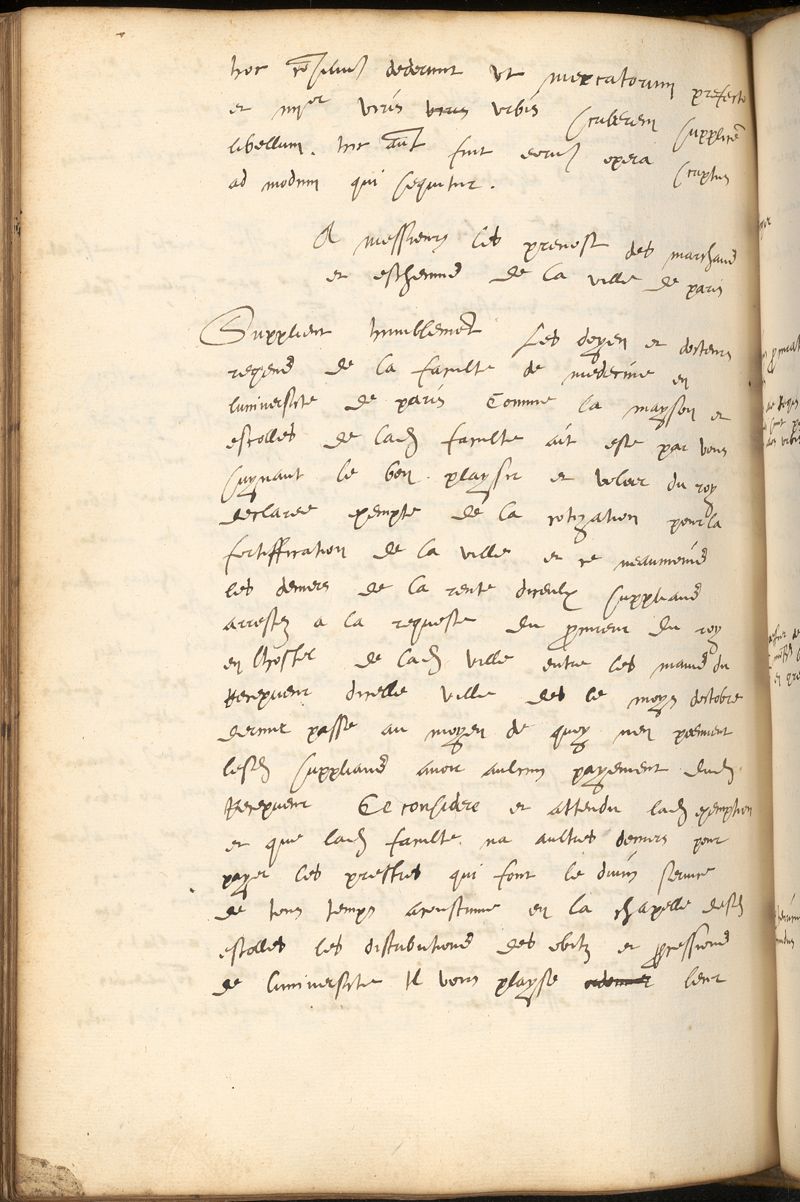 hoc consilium dederunt ut mercatorum prefecto
et iiiior viris viris urbis scriberem supplicem
libellum. hic aut fuit eorum opera scriptus
ad modum qui sequitur.
A messieurs les prevost des marchand
et eschevins de la ville de paris
Supplient humblement Les doyen et docteurs
regens de la faculte de medecine en
luniversite de paris Comme la mayson et
escolles de lad faculte ait este par vous
suyvant le bon playsir et voloir du roy
declaree exempte de la cotization pour la
fortiffication de la ville et ce neaumoins
les deniers de la rente diceulx supplians
arrestez a la requeste du procureur du roy
en lhostel de lad ville entre les mains du
Recepveur dicelle ville des le moys doctobre
dernier passe au moyen de quoy nen peuvent
lesd supplians avoir aulcun payement dud
Recepveur Ce considere et attendu lad exemption
et que lad faculte na aultres deniers pour
payer les prestres qui font le divin service
de tous temps acoustume en la chapelle desd
escolles les distributions des obitz et processions
de luniversite Il vous playse leur